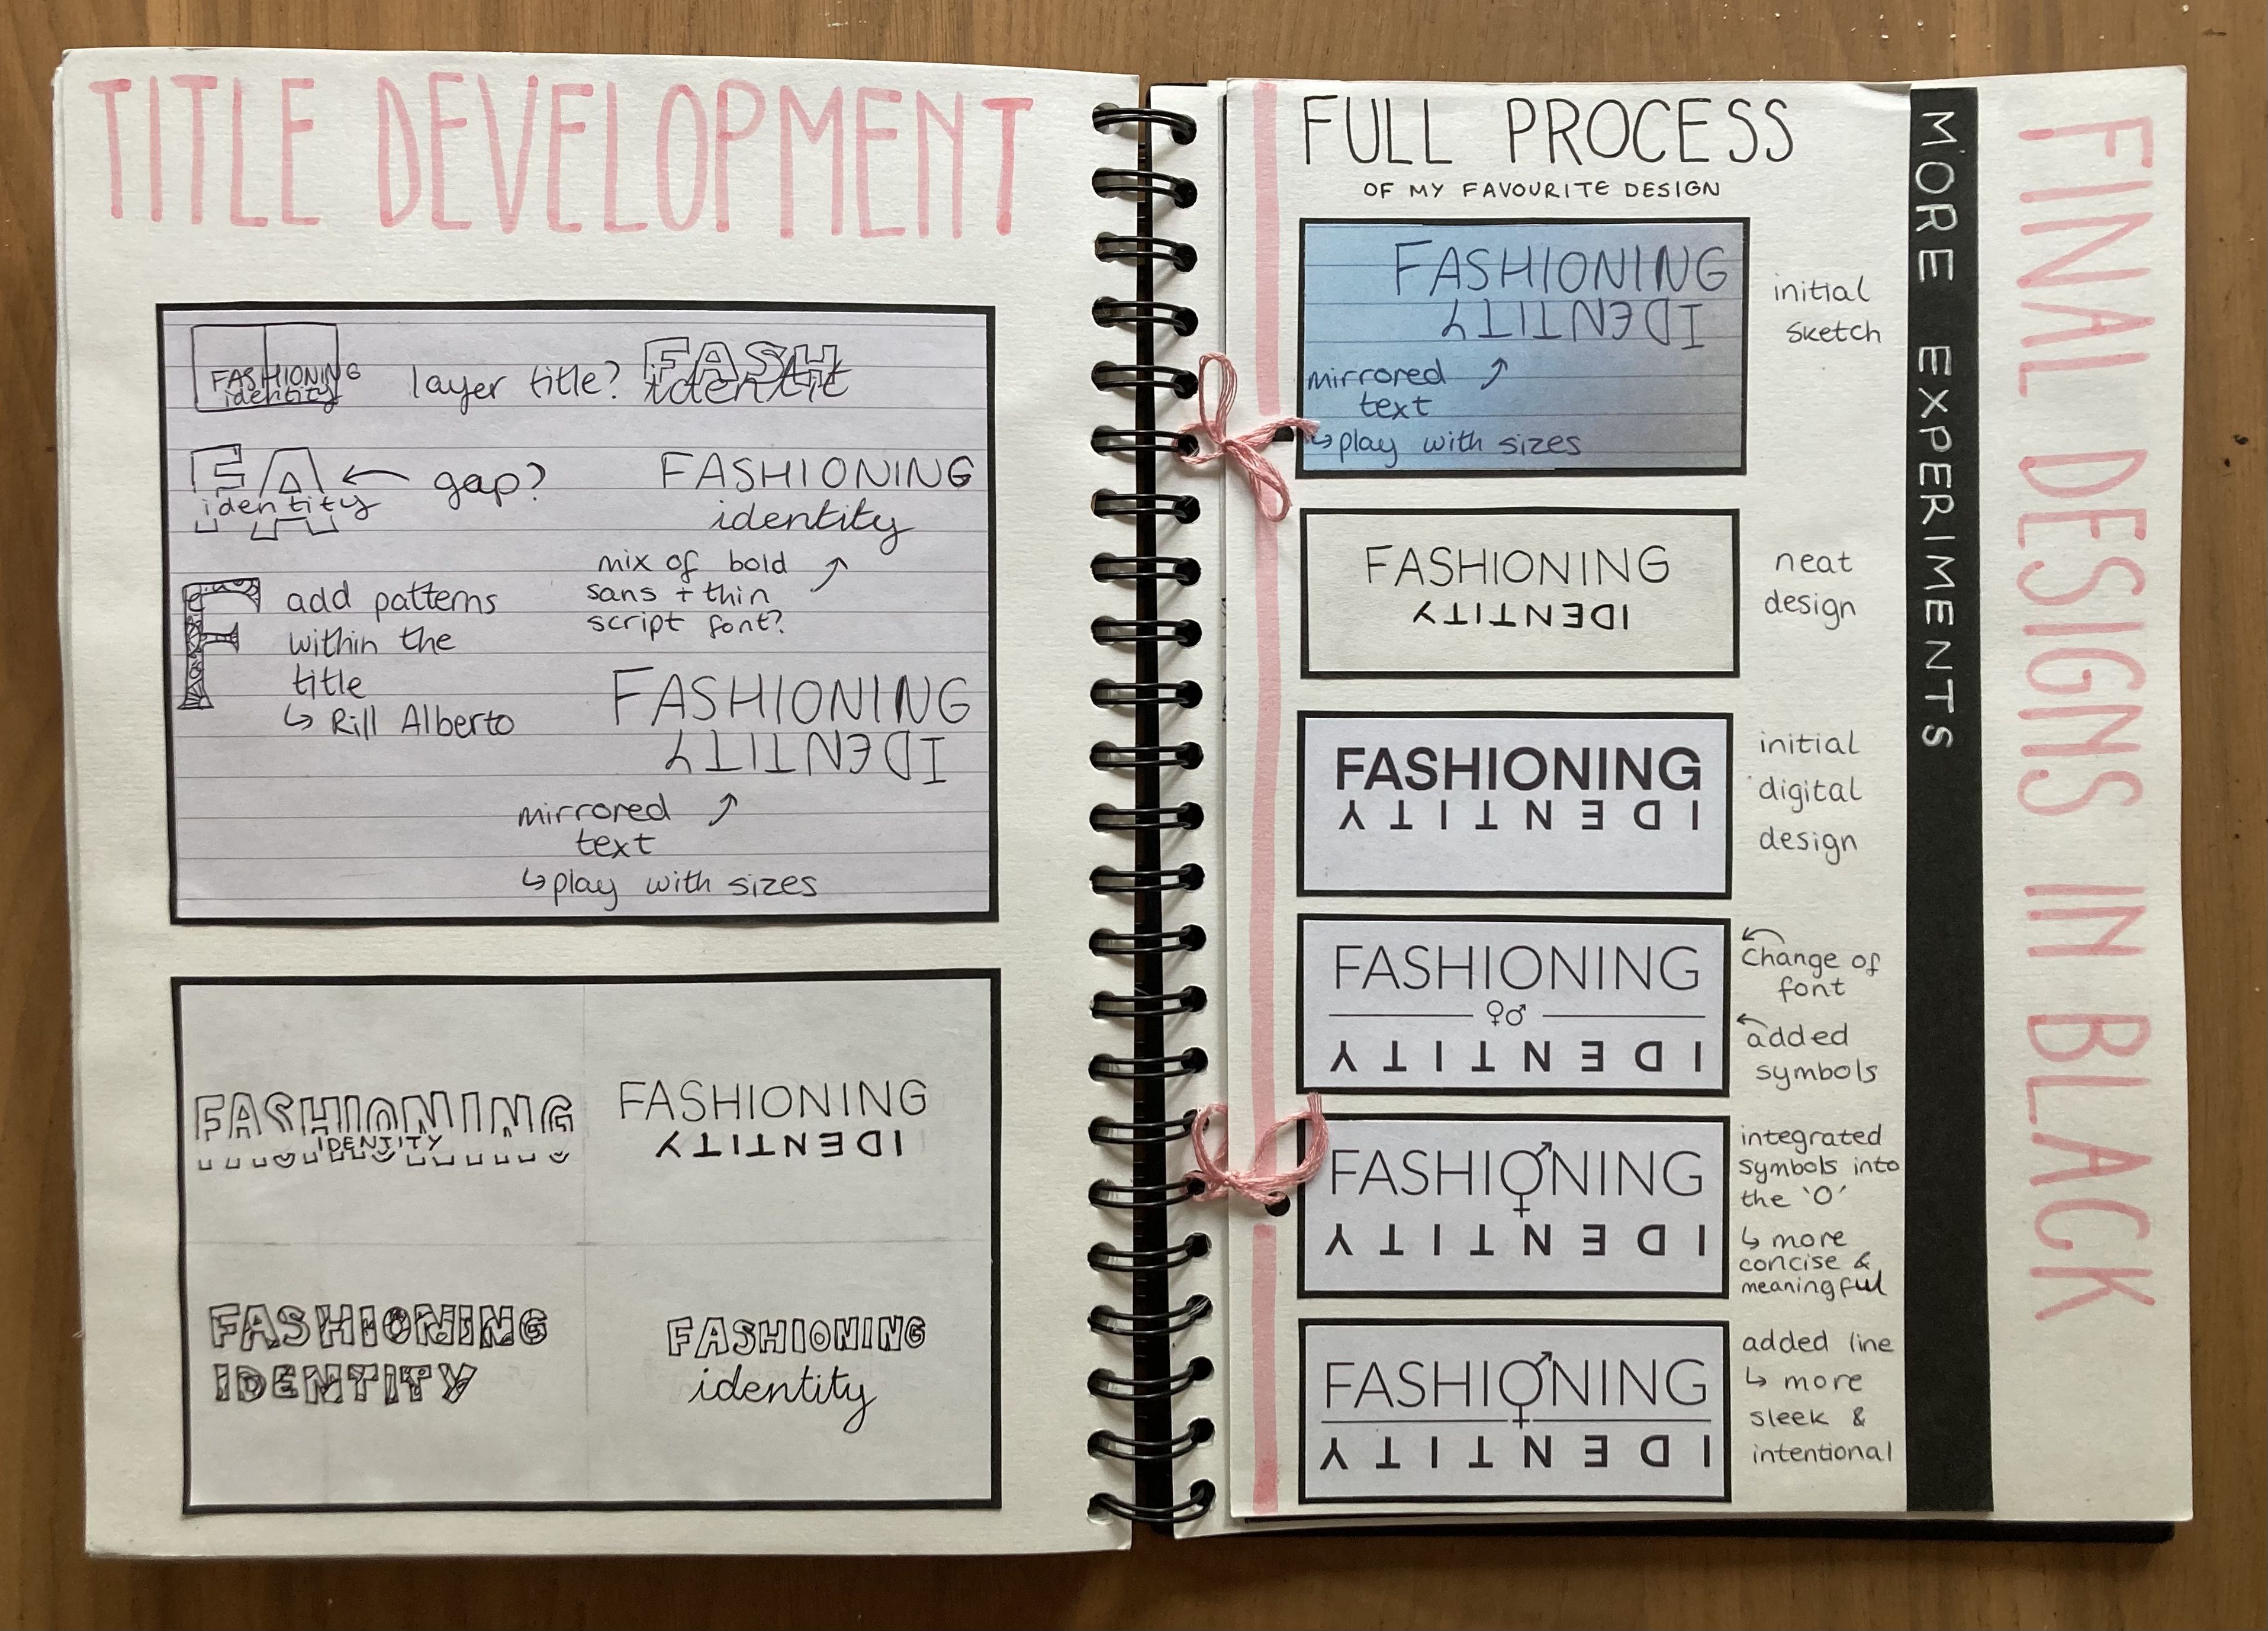 TITLE DEVELOPMENT
FASHIONING
identity
layer title?
FASH
identit
FA
identity
gap?
FASHIONING
identity
mix of bold
sans + thin
script font?
add patterns
within the
title
↳ Rill Alberto
F
FASHIONING
IDENTITY
mirrored
text
↳ play with sizes
FASHIONING
IDENTITY
FASHIONING
IDENTITY
FASHIONING
IDENTITY
FASHIONING
identity
FULL PROCESS
OF MY FAVOURITE DESIGN
FASHIONING
IDENTITY
mirrored
text
↳ play with sizes
initial
sketch
FASHIONING
IDENTITY
neat
design
FASHIONING
IDENTITY
initial
digital
design
FASHIONING
♀♂
IDENTITY
Change of
font
added
symbols
FASHIONING
IDENTITY
integrated
symbols into
the 'O'
↳ more
concise &
meaningful
FASHIONING
IDENTITY
added line
↳ more
sleek &
intentional
MORE EXPERIMENTS
FINAL DESIGNS IN BLACK